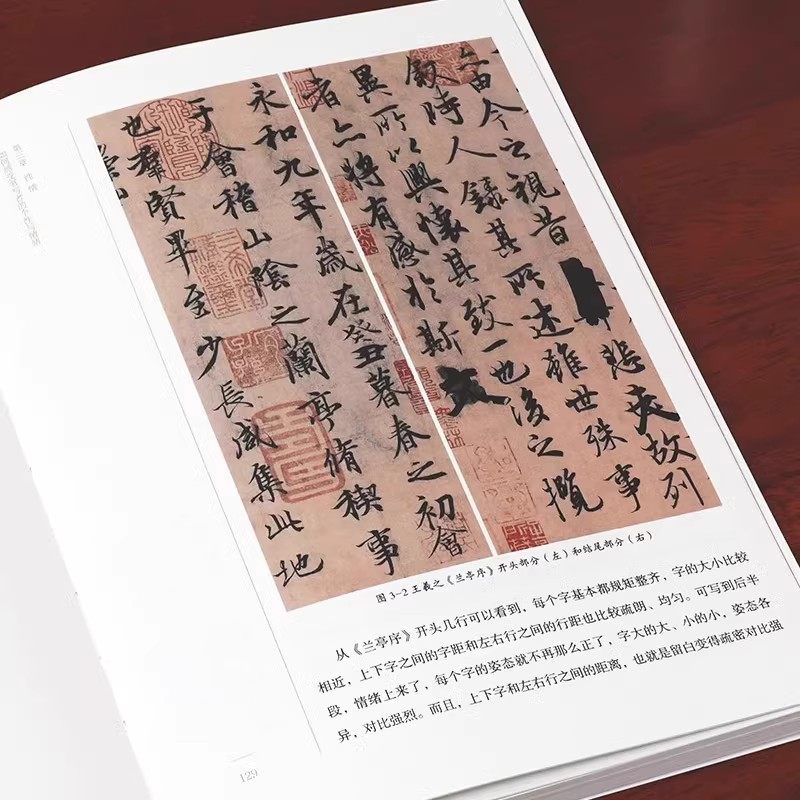 第三章
永和九年歲在癸丑暮春之初會
于會稽山陰之蘭亭脩稧事
也羣賢畢至少長咸集此地
由今之視昔
悲夫故列
敘時人錄其所述雖世殊事
異所以興懷其致一也後之攬
者亦將有感於斯文
图 3-2 王羲之《兰亭序》开头部分（左）和结尾部分（右）
从《兰亭序》开头几行可以看到，每个字基本都规矩整齐，字的大小比较
相近，上下字之间的字距和左右行之间的行距也比较疏朗、均匀。可写到后半
段，情绪上来了，每个字的姿态就不再那么正了，字大的大、小的小，姿态各
异，对比强烈。而且，上下字和左右行之间的距离，也就是留白变得疏密对比强
129